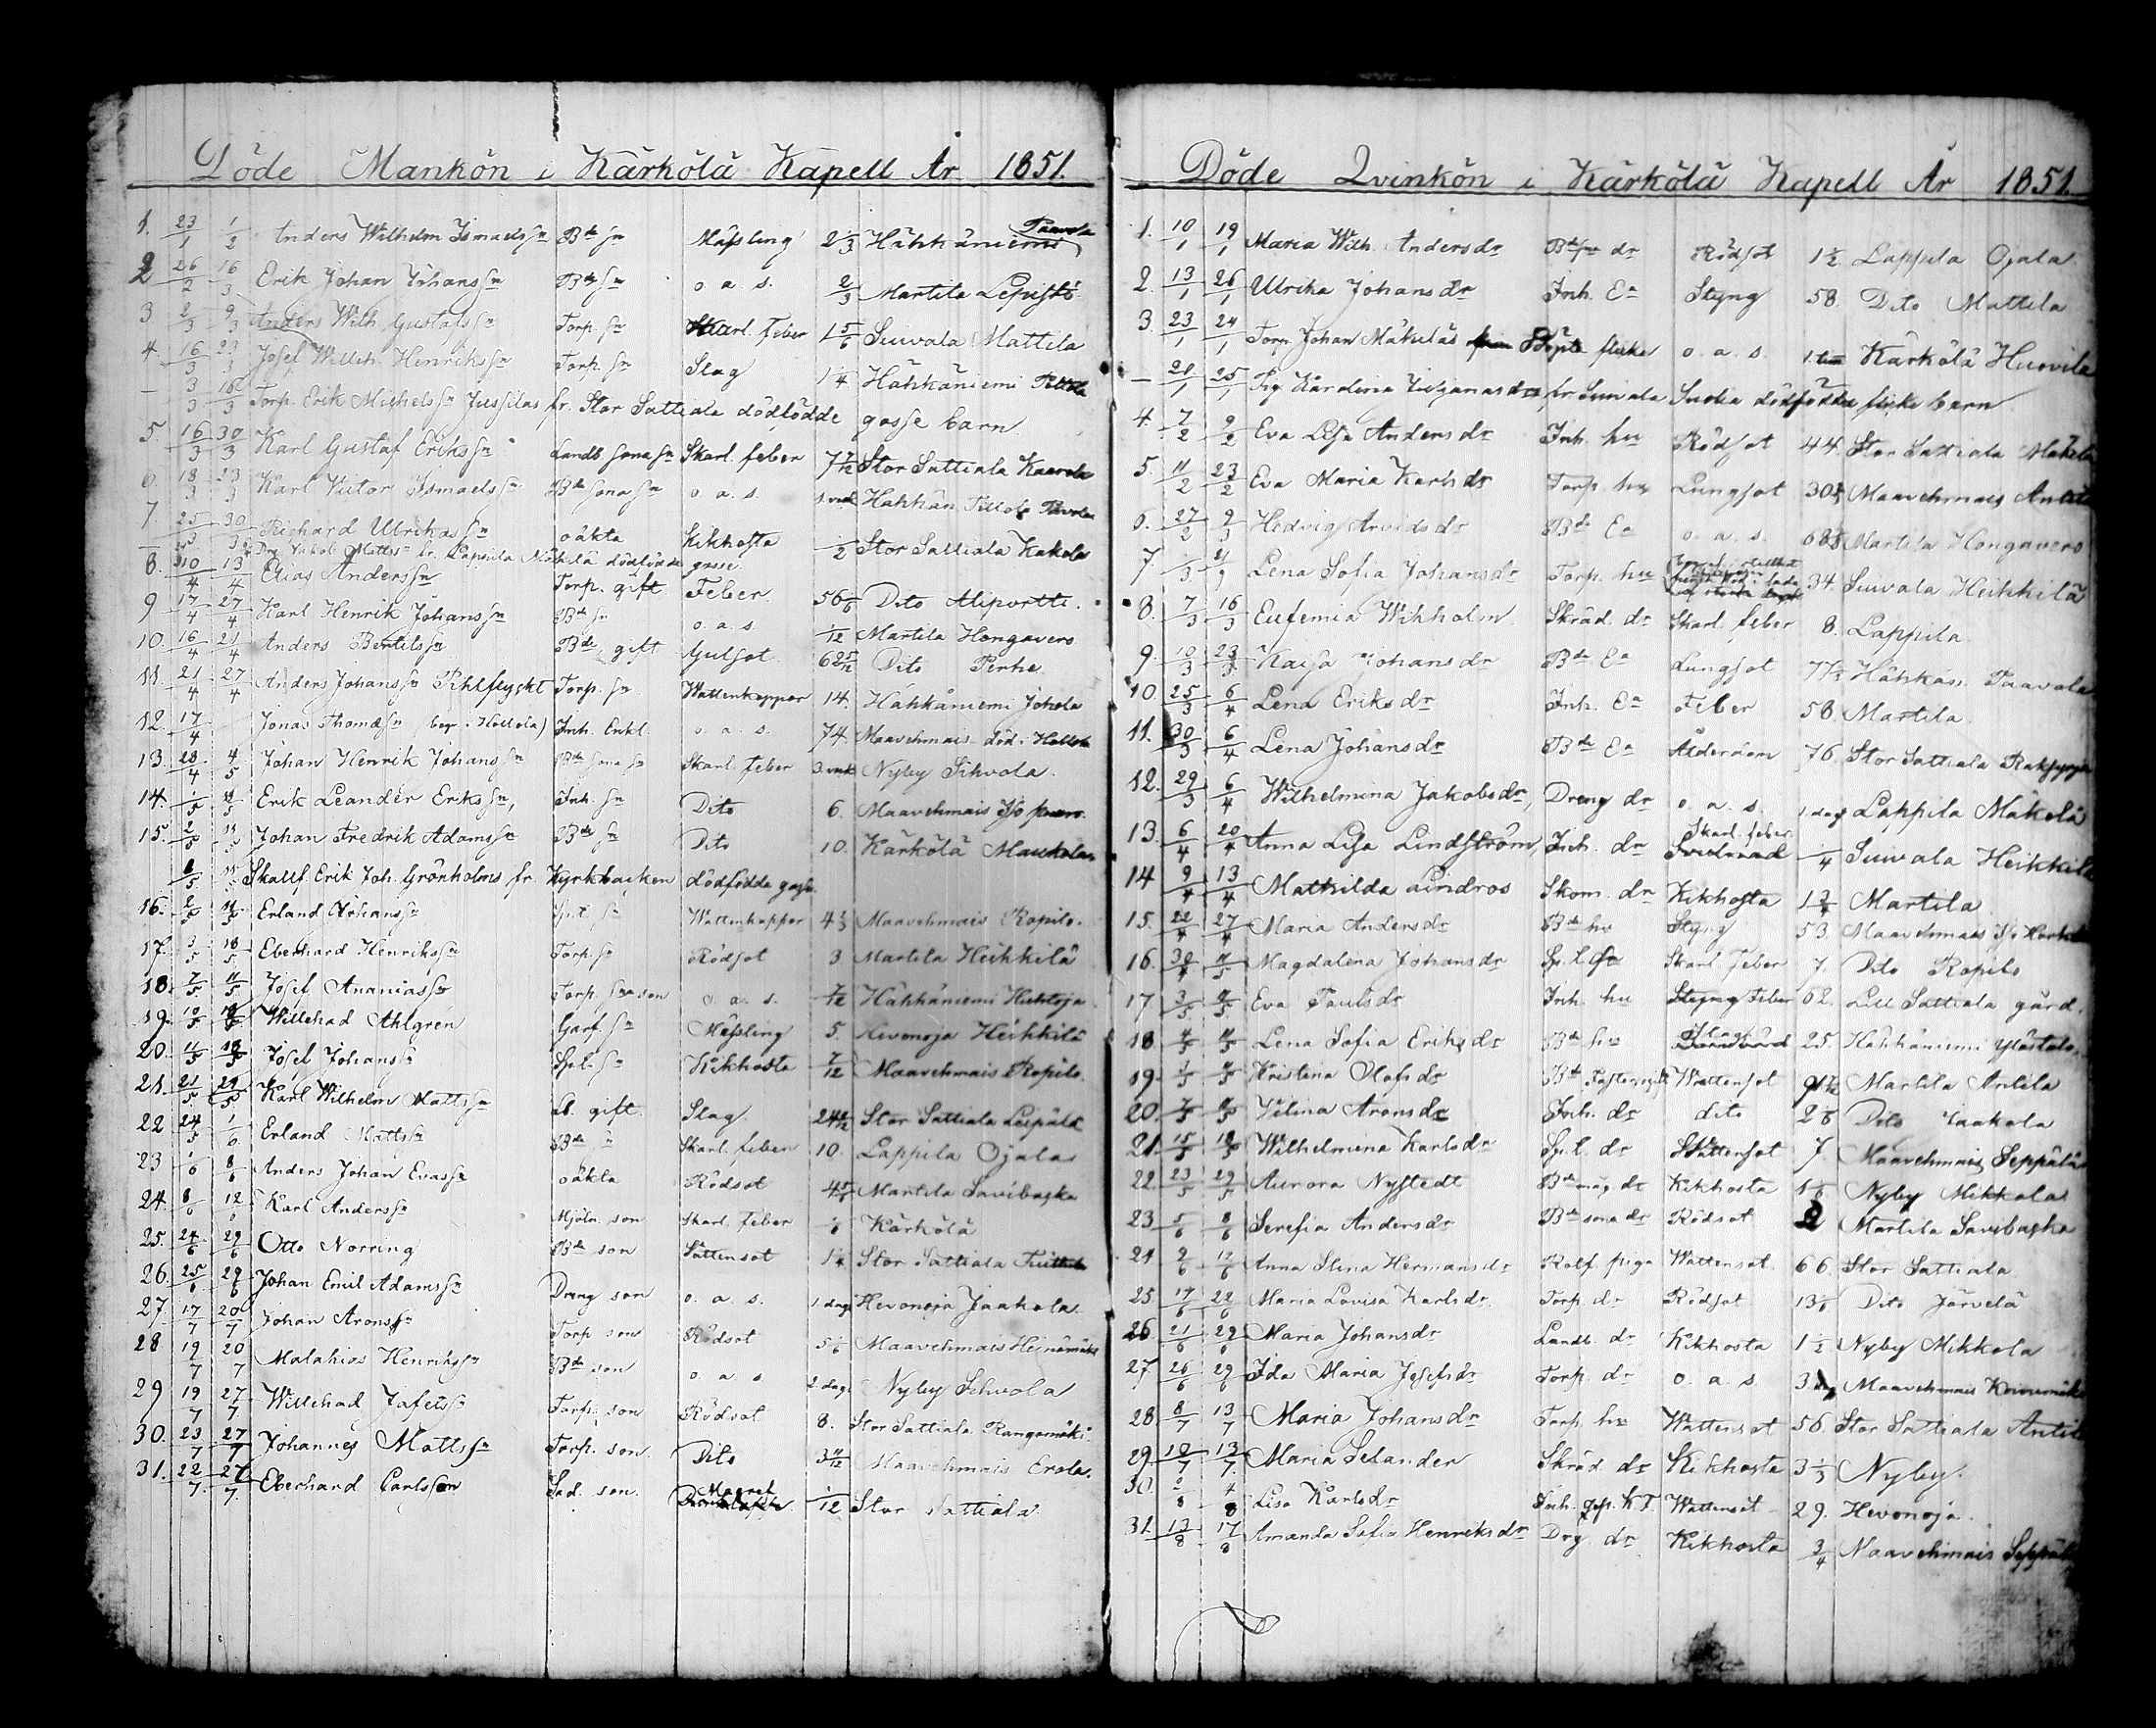 Döde Mankön i Kärkölä Kapell År 1851.
1. 23/1 1/2 Anders Wilhelm Ismaelssn Bde sn Mässling 2 1/3 Hähkäniemi Paavola
2 26/2 16/3 Erik Johan Johanssn Bde sn o. a. s. 2/3 Martila Lepistö
3 2/3 9/3 Anders Wilh. Gustafssn Torp. sn Skarl. Feber 1 5/6 Suuvala Mattila
4. 16/3 23/3 Josef Willeh. Henrikssn Torp. sn Slag 1/4 Hähkäniemi
— 3/3 16/3 Torp. Erik Michelssn Jussilas fr. Stor Sattiala dödfödde gosse barn.
5. 16/3 30/3 Karl Gustaf Erikssn Landb. sona sn Skarl. feber 7 7/12 Stor Sattiala Kaavola
6. 18/3 23/3 Karl Victor Ismaelssn Bde sona sn o. a. s. Hähkän. Paavola
7. 25/3 30/3 Richard Ulrikassn oäkta Kikhosta 1/2 Stor Sattiala Kakola
Drg Jakob Mattssn fr. Lappila Mäkelä dödfödde gosse
8. 10/4 13/4 Elias Anderssn Torp. gift Feber 56 Dito Aliportti.
9 17/4 27/4 Karl Henrik Johanssn Bde sn o. a. s. 1/12 Martila Hongavero
10. 16/4 21/4 Anders Bertilssn Bde gift Gulsot 62 5/12 Dito Perhe
11. 21/4 27/4 Anders Johanssn Pihlflyckt Torp. sn Wattenkoppor 14. Hähkäniemi Jokela
12. 17/4 Jonas Thomæsn (begr. i Hollola) Inh. Enkl. o. a. s. 74. Maavehmais död i Hollola
13. 28/4 4/5 Johan Henrik Johanssn Bde sona sn Skarl. feber Nyby Sihvola.
14. 1/5 11/5 Erik Leander Erikssn, Inh. sn Dito 6. Maavehmais
15. 2/5 11/5 Johan Fredrik Adamssn Bde sn Dito 10. Kärkölä Maukola
Skallf Erik Joh. Grönholms fr. Kyrkbacken dödfödda gosse.
16. 2/5 11/5 Erland Johanssn Spl. sn Wattenkoppor 4 Maavehmais Ropilo.
17. 3/5 18/5 Eberhard Henrikssn Torp. sn Rödsot 3 Martila Heikkilä
18. 7/5 11/5 Josef Ananiassn Torp. son o. a. s. 7/12 Hähkäniemi Huhtoja
19. 10/5 Willehad Ahlgrén Garf. sn Mässling 5. Hevonoja Heikkilä
20. 11/5 18/5 Josef Johanssn Spl. sn Kikhosta 7/12 Maavehmais Ropilo.
21. 21/5 29/5 Karl Wilhelm Mattssn Lb. gift. Slag. Stor Sattiala Leipälä
22 24/5 1/6 Erland Mattssn Bde sn Skarl. feber 10. Lappila Ojala
23 1/6 8/6 Anders Johan Evassn oäkta Rödsot 4 5/6 Martila Savibacka
24. 8/6 12/6 Karl Anderssn Mjöln. son Skarl. Feber 1/6 Kärkölä
25. 24/6 29/6 Otto Norring Bde son Wattensot 1/4 Stor Sattiala
26. 25/6 29/6 Johan Emil Adamssn Dreng son o. a. s. 1 dag. Hevonoja Jaakola.
27. 17/7 20/7 Johan Aronssn Torp. son Rödsot 5 1/6 Maavehmais Heinämäki
28 19/7 20/7 Malakias Henrikssn Bde son o. a. s. 2 dag. Nyby Sihvola
29 19/7 27/7 Willehad Jafetssn Torp. son Rödsot 8. Stor Sattiala Rangomäki.
30. 23/7 27/7 Johannes Mattssn Torp. son. Dito 3 11/12 Maavehmais Erola.
31. 22/7 27/7 Eberhard Carlsson Sad. son. Magref 1/12 Stor Sattiala.
Döde Qvinkön i Kärkölä Kapell År 1851.
1. 10/1 19/1 Maria Wilh. Andersdr dr Rödsot 1 1/2 Lappila Ojala.
2. 13/1 26/1 Ulrika Johansdr Inh. Ea Styng 58. Dito Mattila
3. 23/1 24/1 Torp. Johan Mäkeläs flicka o. a. s. Kärkölä Huovila
— 21/1 25/1 Pig. Karolina fr. Suuvala dödfödda flicka barn
4. 7/2 9/2 Eva Lisa Andersdr Inh. hu Rödsot 44. Stor Sattiala Mäkelä
5. 11/2 23/2 Eva Maria Karlsdr Torp. hu Lungsot 30 Maavehmais Anttila
6. 27/2 9/3 Hedvig Arvidsdr Bde Ea o. a. s. 68 Martila Hongavero
7. 1/3 Lena Sofia Johansdr Torp. hu 34 Suuvala Heikkilä
8. 7/3 16/3 Eufemia Wikholm Skräd. dr Skarl. feber 8. Lappila
9. 10/3 23/3 Kaisa Johansdr Bde Ea Lungsot 77 Hähkän. Paavola
10. 25/3 6/4 Lena Eriksdr Inh. Ea Feber 58. Martila.
11. 30/3 6/4 Lena Johansdr Bde Ea Ålderdom 76. Stor Sattiala
12. 29/3 6/4 Wilhelmina Jakobsdr, Dreng dr o. a. s. 1 dag Lappila Mäkelä
13. 6/4 20/4 Anna Lisa Lindström, Inh. dr Skarl. feber 1/4 Suuvala Heikkilä
14 9/4 13/4 Mathilda Lindros Skom. dr Kikhosta 1 3/4 Martila
15. 22/4 27/4 Maria Andersdr Bde hu Styng 53. Maavehmais
16. 30/4 11/5 Magdalena Johansdr Spl. dr Skarl. Feber 7. Dito Ropilo
17 3/5 11/5 Eva Paulsdr Inh. hu Feber 62. Lill Sattiala gård.
18 4/5 11/5 Lena Sofia Eriksdr Bde hu Slag 25. Hähkäniemi Ylöstalo.
19. 1/5 11/5 Kristina Olofsdr Wattensot Martila Antila
20. 7/5 11/5 Velina Aronsdr Inh. dr dito 2 1/6 Dito Jaakola
21. 15/5 18/5 Wilhelmina Karlsdr Spl. dr Wattensot 7. Maavehmais Seppälä
22. 23/5 29/5 Aurora Nystedt Bde måg. dr Kikhosta 1 1/6 Nyby Mikkola
23. 5/6 8/6 Serefia Andersdr Bde sona dr Rödsot 2 Martila Savibacka
24 2/6 12/6 Anna Stina Hermansdr Rotf. piga Wattensot. 66. Stor Sattiala.
25. 17/6 22/6 Maria Lovisa Karlsdr. Torp. dr Rödsot 13 1/6 Dito Järvelä
26. 21/6 29/6 Maria Johansdr Landb. dr Kikhosta 1 1/2 Nyby Mikkola
27. 26/6 29/6 Ida Maria Josefsdr Torp. dr o. a. s. 3 Maavehmais Koivumäki
28. 8/7 13/7 Maria Johansdr Torp. hu Wattensot 56. Stor Sattiala Antila
29. 10/7 13/7 Maria Selander Skräd. dr Kikhosta 3 1/3 Nyby.
30. 2/8 4/8 Lisa Karlsdr Inh. Wattensot 29. Hevonoja.
31. 13/8 17/8 Amanda Sofia Henriksdr Drg dr Kikhosta 3/4 Maavehmais Seppälä